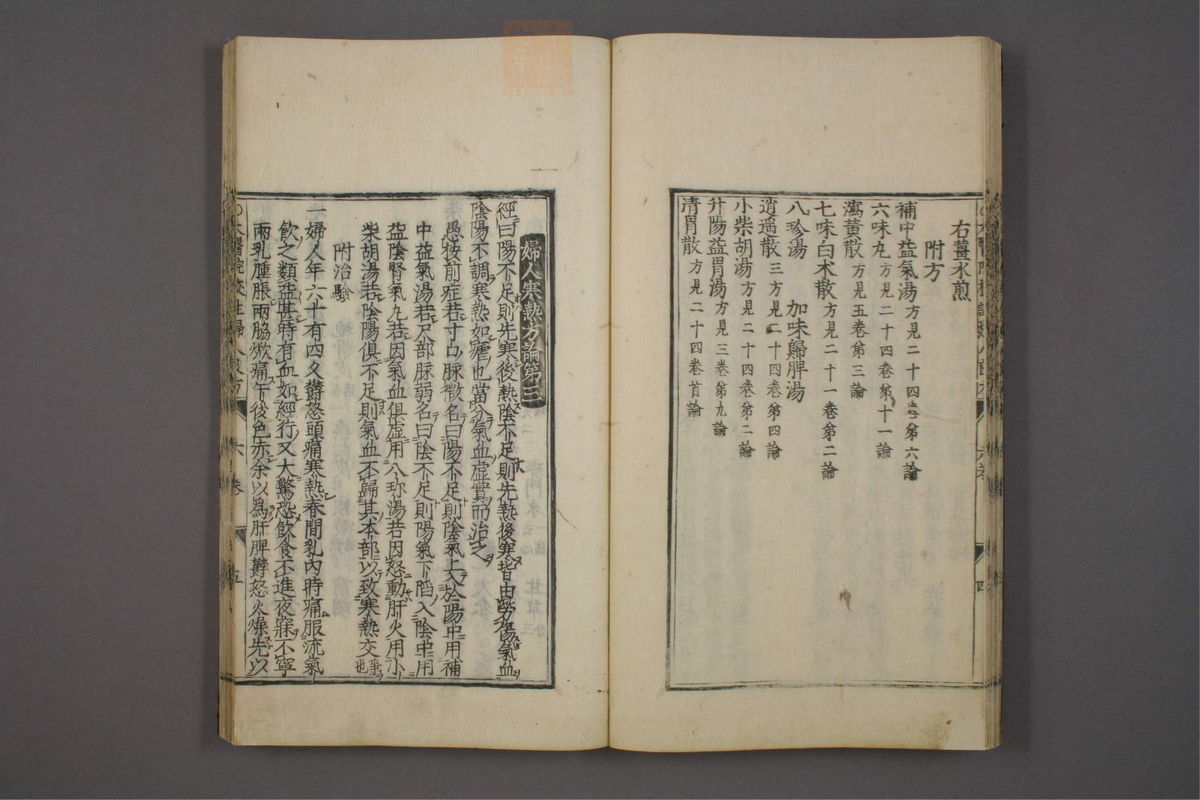 右薑水煎
附方
補中益氣湯 方見二十四卷第六論
六味丸 方見二十四卷第十一論
瀉黃散 方見五卷第三論
七味白朮散 方見二十一卷第二論
八珍湯 加味歸脾湯
逍遥散 三方見二十四卷第四論
小柴胡湯 方見二十四卷第二論
升陽益胃湯 方見三卷第九論
清胃散 方見二十四卷首論
四
婦人寒熱方論第三
經曰陽不足則先寒後熱陰不足則先熱後寒皆由勞傷氣血
陰陽不調寒熱如瘧也當分氣血虛實而治之
愚按前症若寸口脉微名曰陽不足則陰氣上入於陽中用補
中益氣湯若尺部脉弱名曰陰不足則陽氣下陷入陰中用
益陰腎氣丸若因氣血俱虛用八珍湯若因怒動肝火用小
柴胡湯若陰陽俱不足則氣血不歸其本部以致寒熱交爭也
附治驗
一婦人年六十有四久鬱怒頭痛寒熱春間乳內時痛服流氣
飲之類益甚時有血如經行又大驚恐飲食不進夜寐不寧
兩乳腫脹兩脇焮痛午後色赤余以爲肝脾鬱怒火燥先以
太醫院校註婦人良方 六卷 五